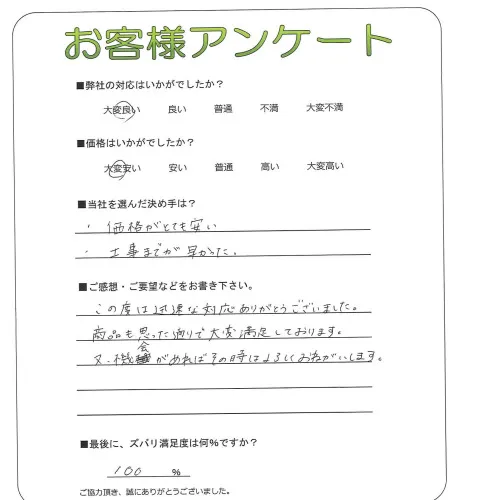 お客様アンケート
■弊社の対応はいかがでしたか？
大変良い 良い 普通 不満 大変不満
■価格はいかがでしたか？
大変安い 安い 普通 高い 大変高い
■当社を選んだ決め手は？
・価格がとても安い
・工事までが早かった.
■ご感想・ご要望などをお書き下さい。
この度は迅速な対応ありがとうございました。
商品も思った通りで大変満足しております。
又、機会があればその時はよろしくお願いします。
■最後に、ズバリ満足度は何%ですか？
100 %
ご協力頂き、誠にありがとうございました。